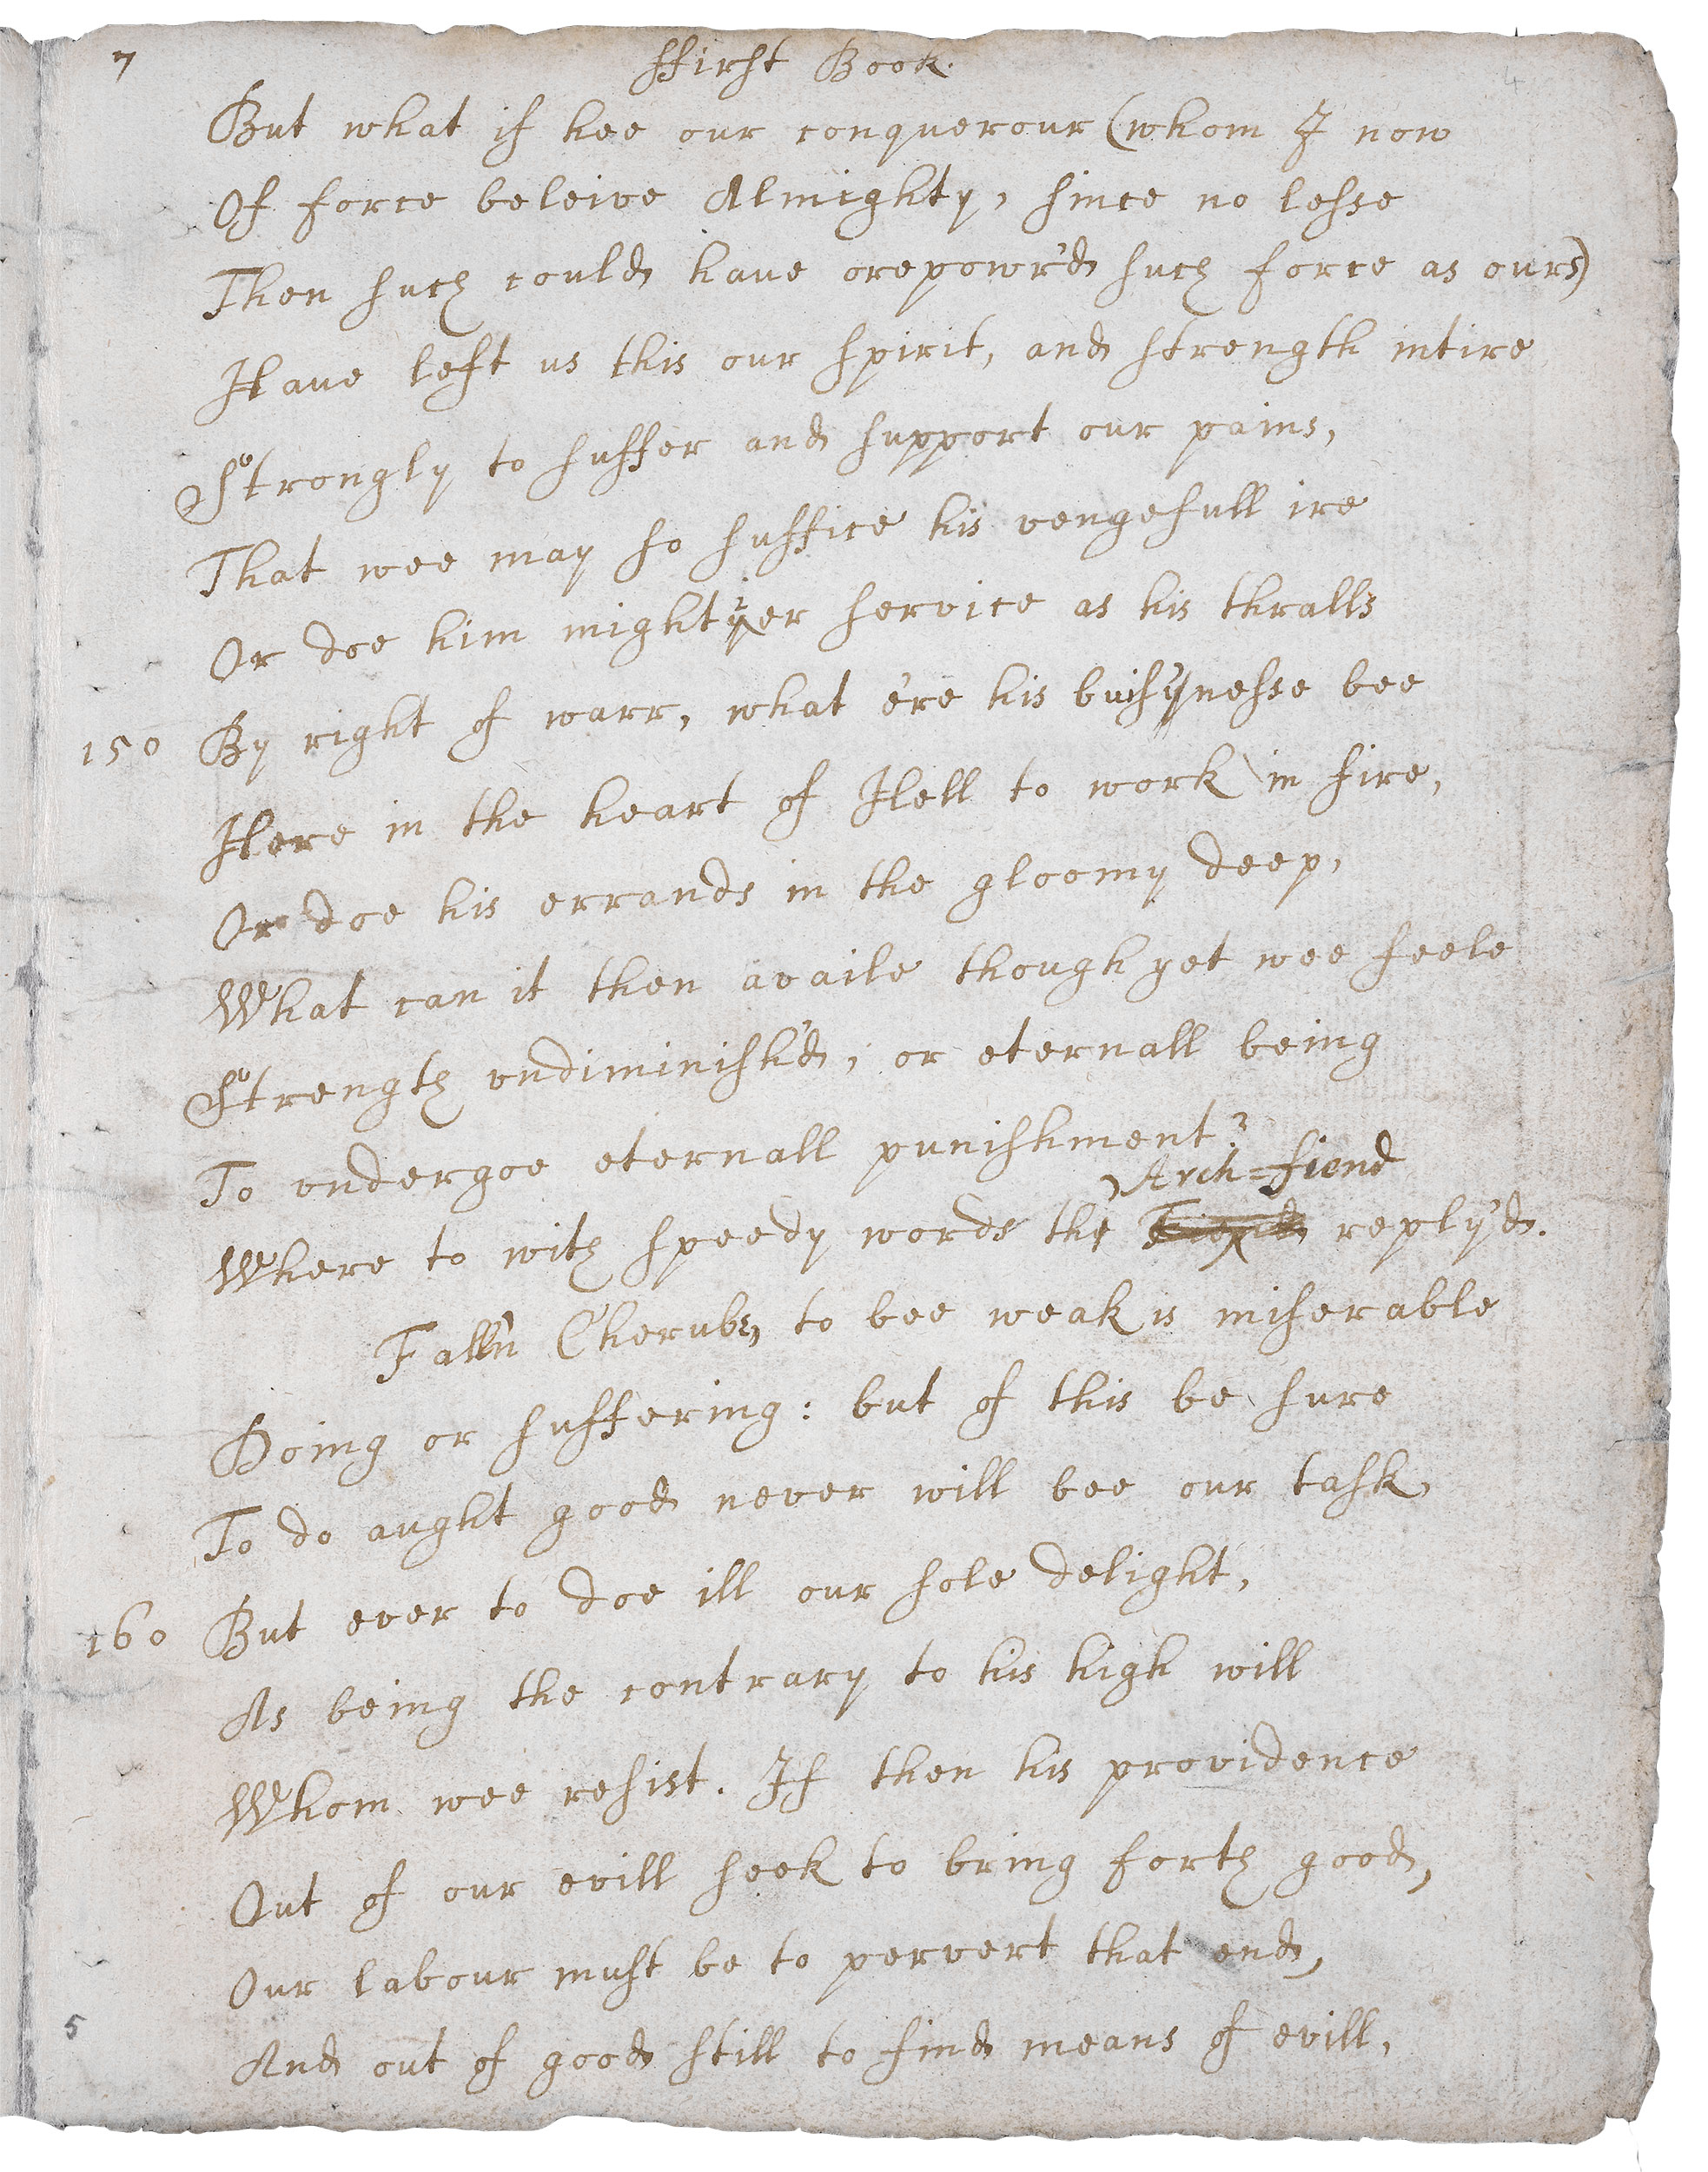 7 ffirst Book. 4
But what if hee our conquerour (whom I now
Of force beleive Almighty, since no lesse
Then such could have orepowr'd such force as ours)
Have left us this our spirit, and strength intire
Strongly to suffer and support our pains,
That wee may so suffice his vengefull ire
Or doe him mightier service as his thralls
150 By right of warr, what e're his buisnesse bee
Here in the heart of Hell to work in fire,
Or doe his errands in the gloomy deep,
What can it then availe though yet wee feele
Strength undiminish'd, or eternall being
To undergoe eternall punishment?
Arch-fiend
Where to with speedy words the Fiend reply'd.
Fall'n Cherub, to bee weak is miserable
Doing or suffering: but of this be sure
To do aught good never will bee our task,
160 But ever to doe ill our sole delight,
As being the contrary to his high will
Whom wee resist. If then his providence
Out of our evill seek to bring forth good,
Our labour must be to pervert that end,
5 And out of good still to find means of evill,